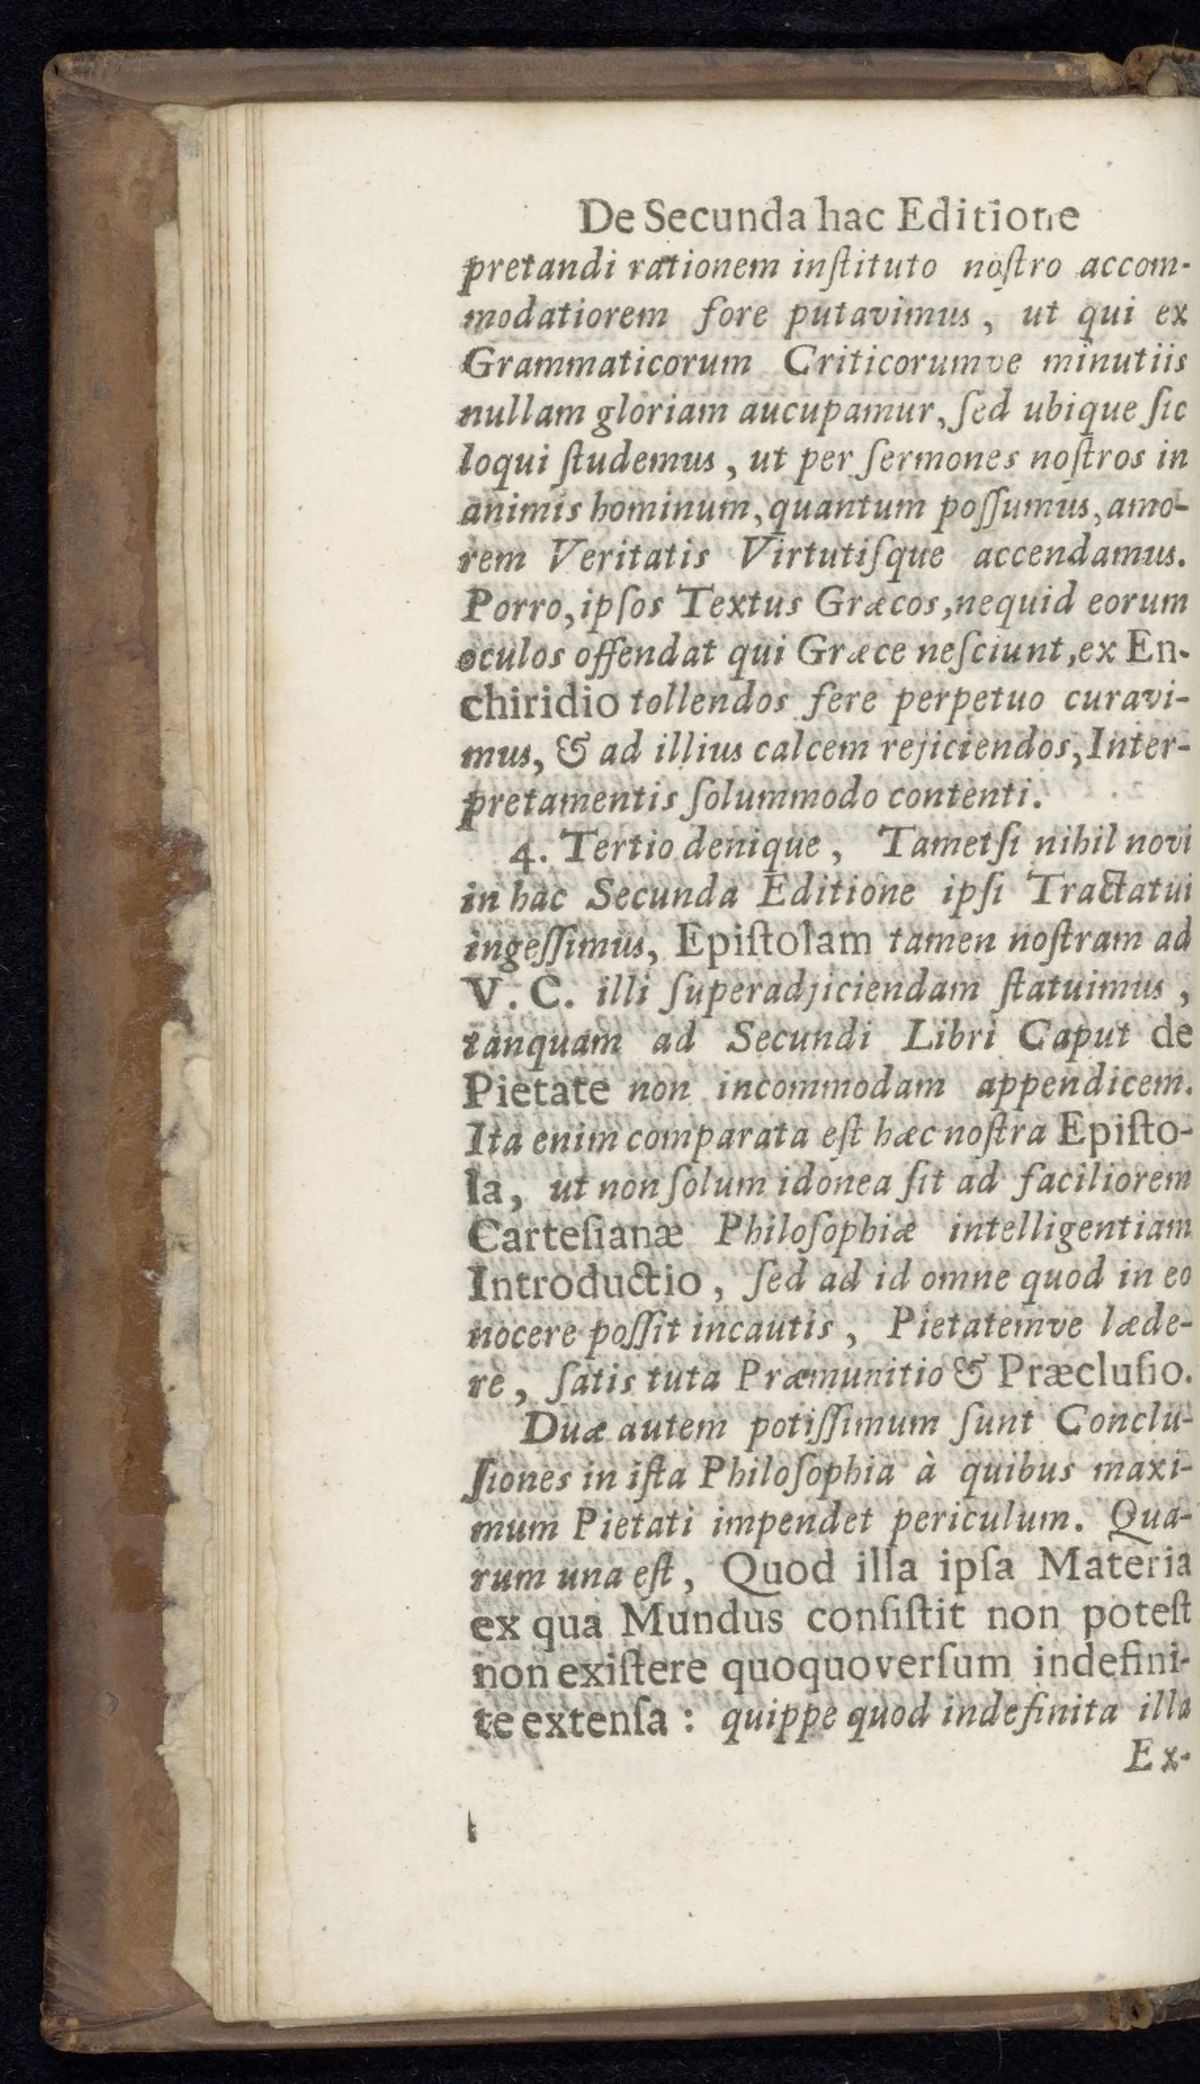 De Secunda hac Editione
pretandi rationem inſtituto noſtro accom-
modatiorem fore putavimus, ut qui ex
Grammaticorum Criticorumve minutiis
nullam gloriam aucupamur, ſed ubique ſic
loqui ſtudemus, ut per ſermones noſtros in
animis hominum, quantum poſſumus, amo-
rem Veritatis Virtutiſque accendamus.
Porro, ipſos Textus Græcos, nequid eorum
oculos offendat qui Græce neſciunt, ex En-
chiridio tollendos fere perpetuo curavi-
mus, & ad illius calcem rejiciendos, Inter-
pretamentis ſolummodo contenti.
4. Tertio denique, Tametſi nihil novi
in hac Secunda Editione ipſi Tractatui
ingeſſimus, Epiſtolam tamen noſtram ad
V. C. illi ſuperadjiciendam ſtatuimus,
tanquam ad Secundi Libri Caput de
Pietate non incommodam appendicem.
Ita enim comparata eſt hæc noſtra Epiſto-
la, ut non ſolum idonea ſit ad faciliorem
Carteſianæ Philoſophiæ intelligentiam
Introductio, ſed ad id omne quod in eo
nocere poſſit incautis, Pietatemve læde-
re, ſatis tuta Præmunitio & Præcluſio.
Duæ autem potiſſimum ſunt Conclu-
ſiones in iſta Philoſophia à quibus maxi-
mum Pietati impendet periculum. Qua-
rum una eſt, Quod illa ipſa Materia
ex qua Mundus conſiſtit non poteſt
non exiſtere quoquoverſum indefini-
te extenſa: quippe quod indefinita illa
Ex-